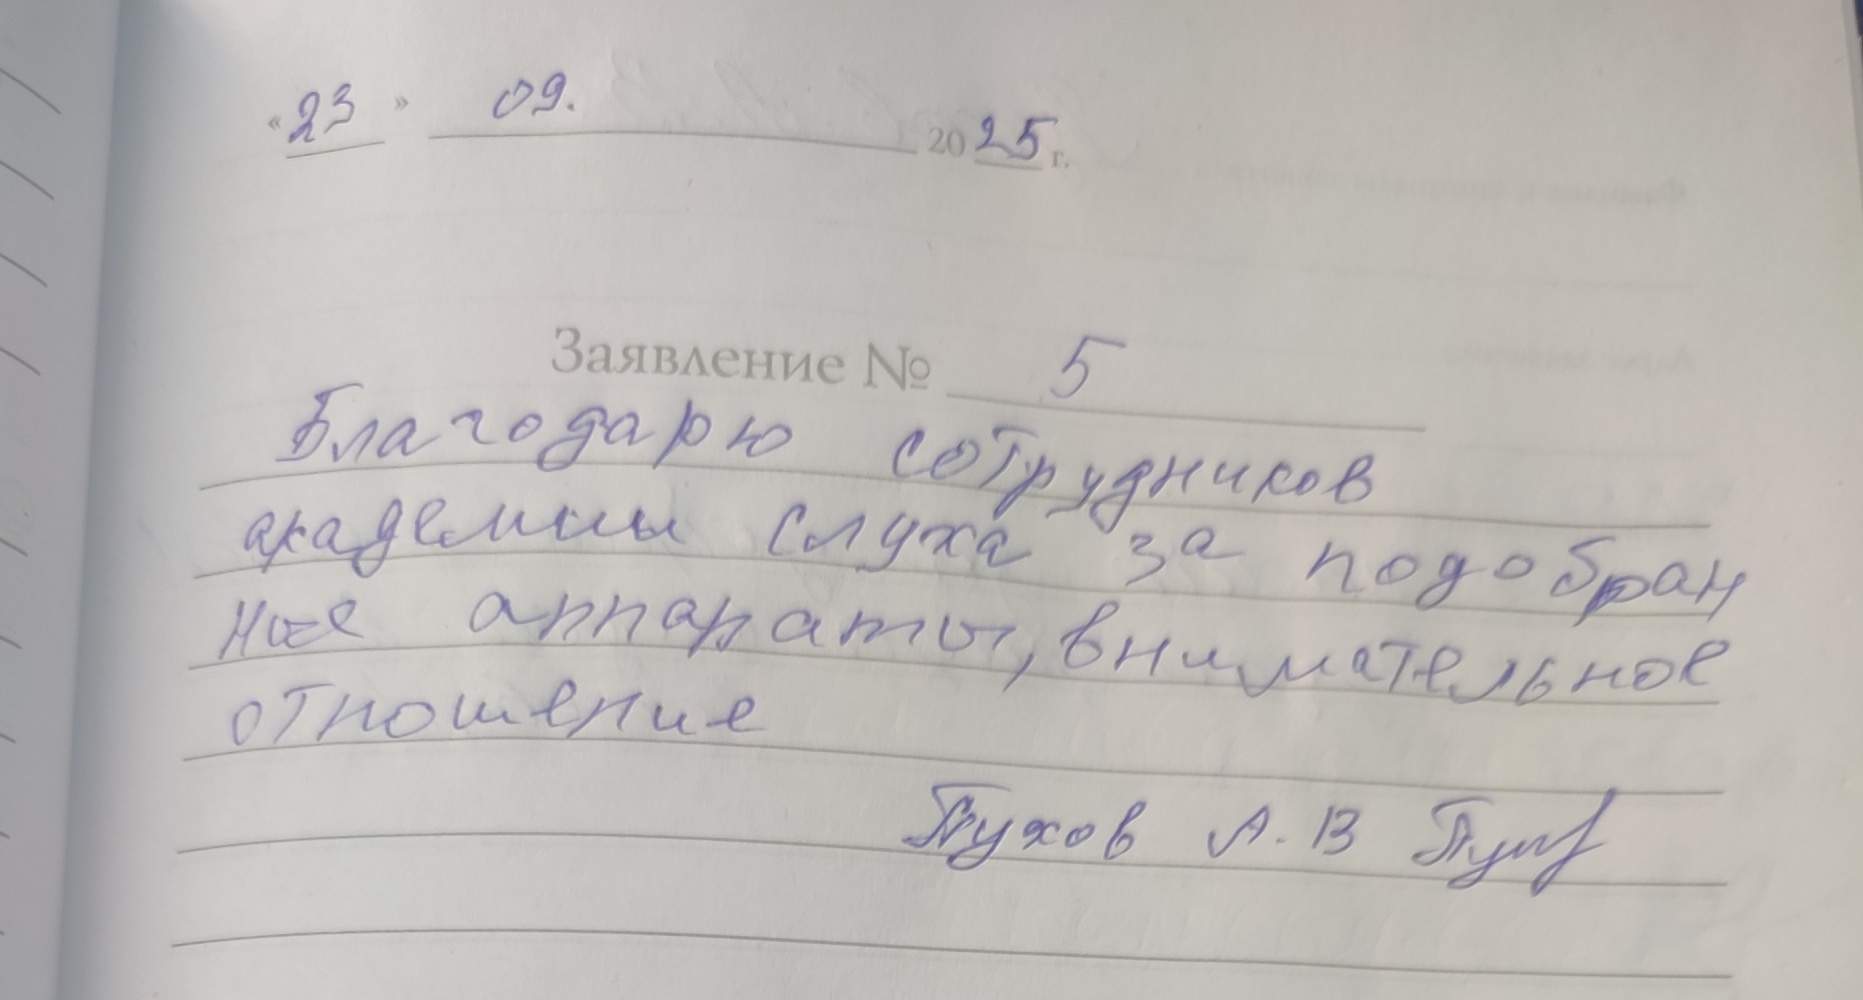 «23» 09. 2025 г.
Заявление № 5
Благодарю сотрудников
академии слуха за подобран
ные аппараты, внимательное
отношение
Пухов А. В